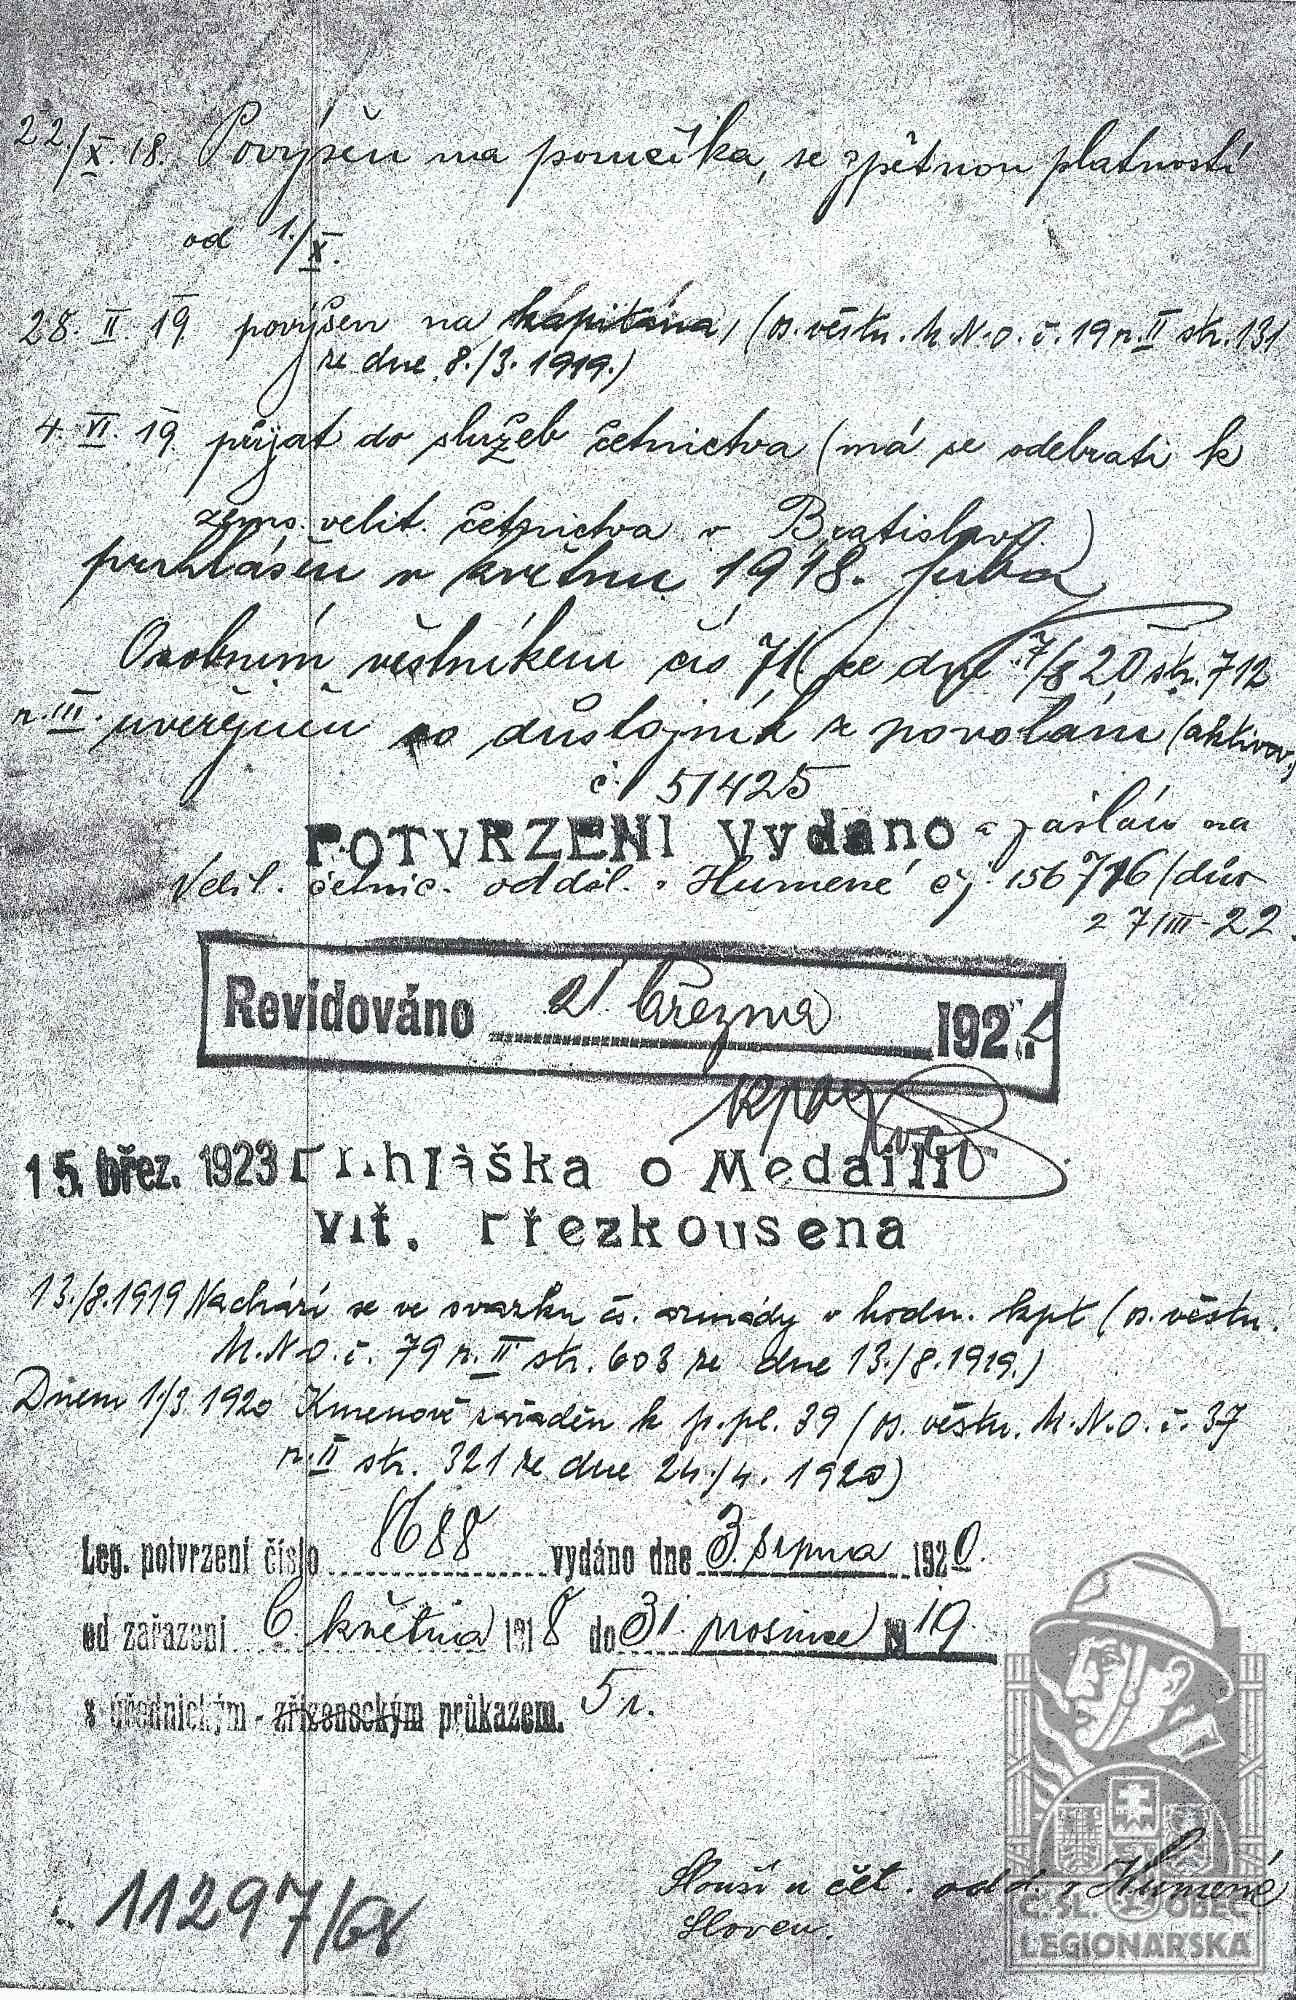 22./X. 18. Povýšen na poručíka, se zpětnou platností
od 1./X.
28. II 19. povýšen na kapitána, (os. věstn. M.N.O. č. 19 r. II str. 131
ze dne 8./3. 1919.)
4. VI. 19. přijat do služeb četnictva (má se odebrati k
zems. velit. četnictva v Bratislavě)
prohlášen v květnu 1918.
Osobním věstníkem čís 71 ze dne 7/8 20 str. 712
r. III. uveřejněn co důstojník z povolání (aktivov.)
č. 51425
POTVRZENI Vydano a zaslán na
Velit. četnic. odděl. v Humenné čj. 156776/dův
27/III-22.
Revidováno 21 března 1921
15. břez. 1923 Přihláška o Medaili
vít. Přezkousena
13./8.1919 Nachází se ve svazku čs. armády v hodn. kpt (os. věstn.
M.N.O. č. 79 r. II str. 603 ze dne 13./8.1919.)
Dnem 1./3 1920 Kmenově zařaděn k p. pl. 39 (os. věstn. M.N.O. č. 37
r. II str. 321 ze dne 24./4. 1920)
Leg. potvrzení číslo 8688 vydáno dne 3. srpna 1920.
od zařazení 6. května 1918 do 31. prosince 1919.
s úřednickým - zřízeneckým průkazem. 5 r.
Slouží u čet. odd. v Humenné
Sloven.
11297/68
Č. SL. OBEC
LEGIONÁŘSKÁ